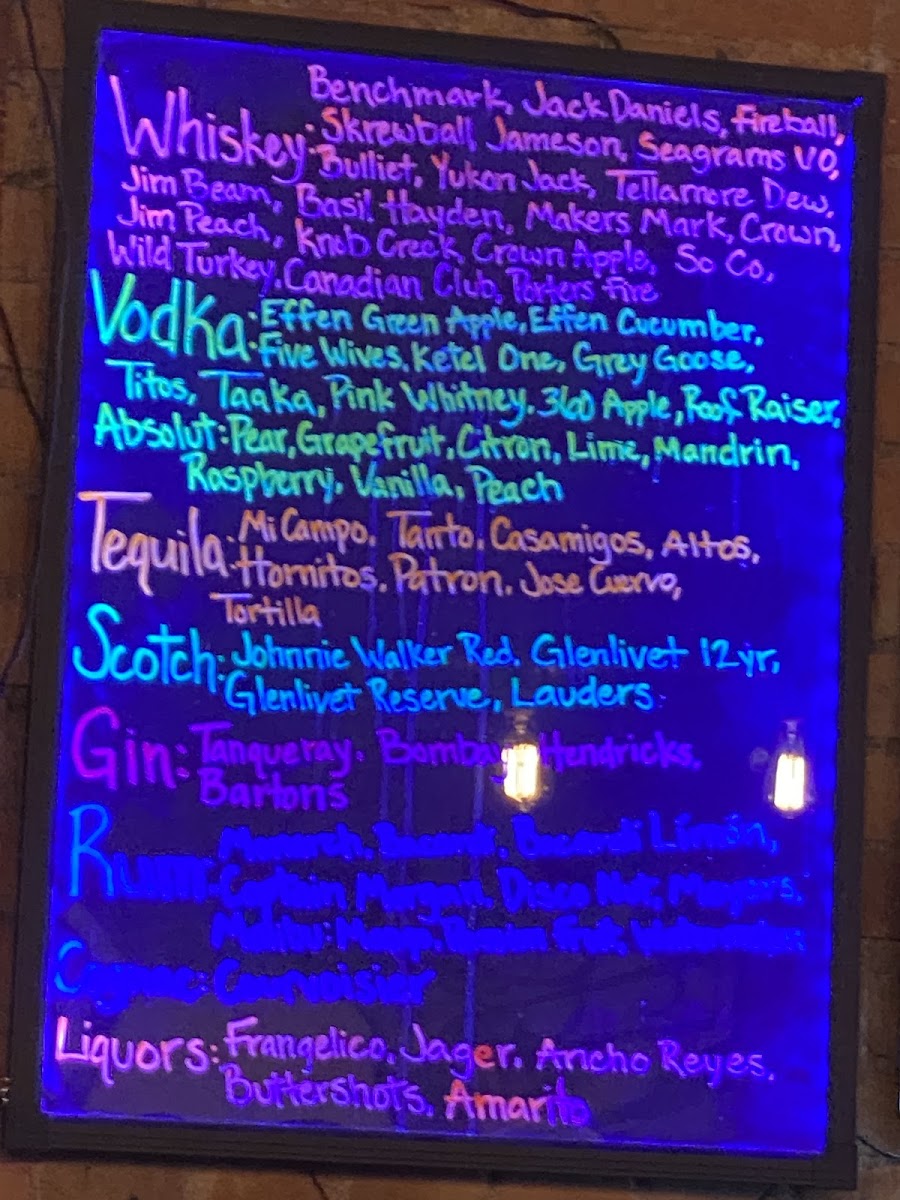 Benchmark, Jack Daniels, Fireball,
Whiskey: Skrewball, Jameson, Seagrams VO,
Bulliet, Yukon Jack, Tellamore Dew,
Jim Beam, Basil Hayden, Makers Mark, Crown,
Jim Peach, Knob Creek, Crown Apple, So Co,
Wild Turkey, Canadian Club, Porters Fire
Vodka: Effen Green Apple, Effen Cucumber,
Five Wives, Ketel One, Grey Goose,
Titos, Taaka, Pink Whitney, 360 Apple, Roof Raiser,
Absolut: Pear, Grapefruit, Citron, Lime, Mandrin,
Raspberry, Vanilla, Peach
Tequila: Mi Campo, Tanto, Casamigos, Altos,
Hornitos, Patron, Jose Cuervo,
Tortilla
Scotch: Johnnie Walker Red, Glenlivet 12yr,
Glenlivet Reserve, Lauders
Gin: Tanqueray, Bombay, Hendricks,
Bartons
Rum: Monarch, Bacardi, Bacardi Limón,
Captain Morgan, Disco Nut, Meyers,
Malibu: Mango, Passion Fruit, Watermelon
Cognac: Courvoisier
Liquors: Frangelico, Jager, Ancho Reyes,
Buttershots, Amarito